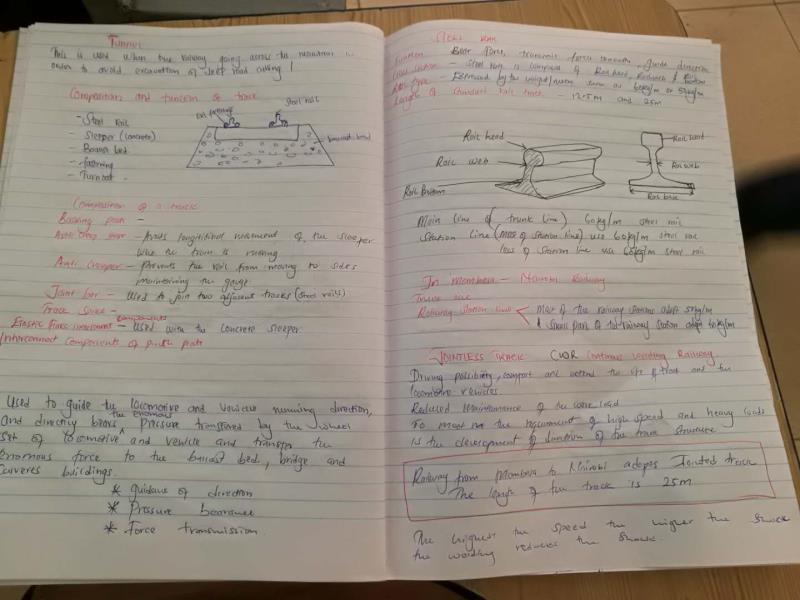 Tunnel
This is used when the railway going across the mountain in
order to avoid excavation of deep road cutting!
Composition and function of track
Steel rail
- Steel rail
- Sleeper (concrete)
- Boarst bed
- fastening
- Turnout.
Composition of a track
Bearing plate -
Anti creep bear - Avoids longitudinal movement of the sleeper
while the train is moving
Anti creeper - prevents the rail from moving to sides
maintaining the gauge
Joint bar - Used to join two adjacent tracks (steel rails)
Track Spike -
components
- Used with the concrete sleeper
Interconnect Components of
Used to guide the locomotive and vehicle running direction,
and directly bears the enormous pressure transferred by the wheel
set of locomotive and vehicle and transfer the
enormous force to the ballast bed, bridge and
culverts buildings.
* guidance of direction
* Pressure bearance
* Force transmission
Steel Rail
Function - Bear force, transmit force smooth, guide direction
- Steel rail is composed of Rail head, Railweb & Rail bottom
Rail type - Expressed by the weight/meter such as 60kg/m or 50kg/m
Length of standard rail track - 12.5m and 25m
Rail head
Rail web
Rail Bottom
Rail head
Rail web
Rail base
Main line (of trunk line) 60kg/m steel rail
Station line (most of station line) use 60kg/m steel rail
less of station line use kg/m steel rail
In Mombasa - Nairobi Railway
Railway station line
Most of the railway stations adopt 50kg/m
A small part of the railway station adopt 60kg/m
JOINTLESS TRACK CWR Continuous welding Railway.
Driving possibility, comfort and extend the life of track and the
locomotive vehicles.
Reduced maintenance of the work load
To meet the requirement of high speed and heavy loads
is the development of direction of the track structure
Railway from Mombasa to Nairobi adopts Jointed track
The length of the track is 25m
The highest the speed the higher the shock
the welding reduces the shock.